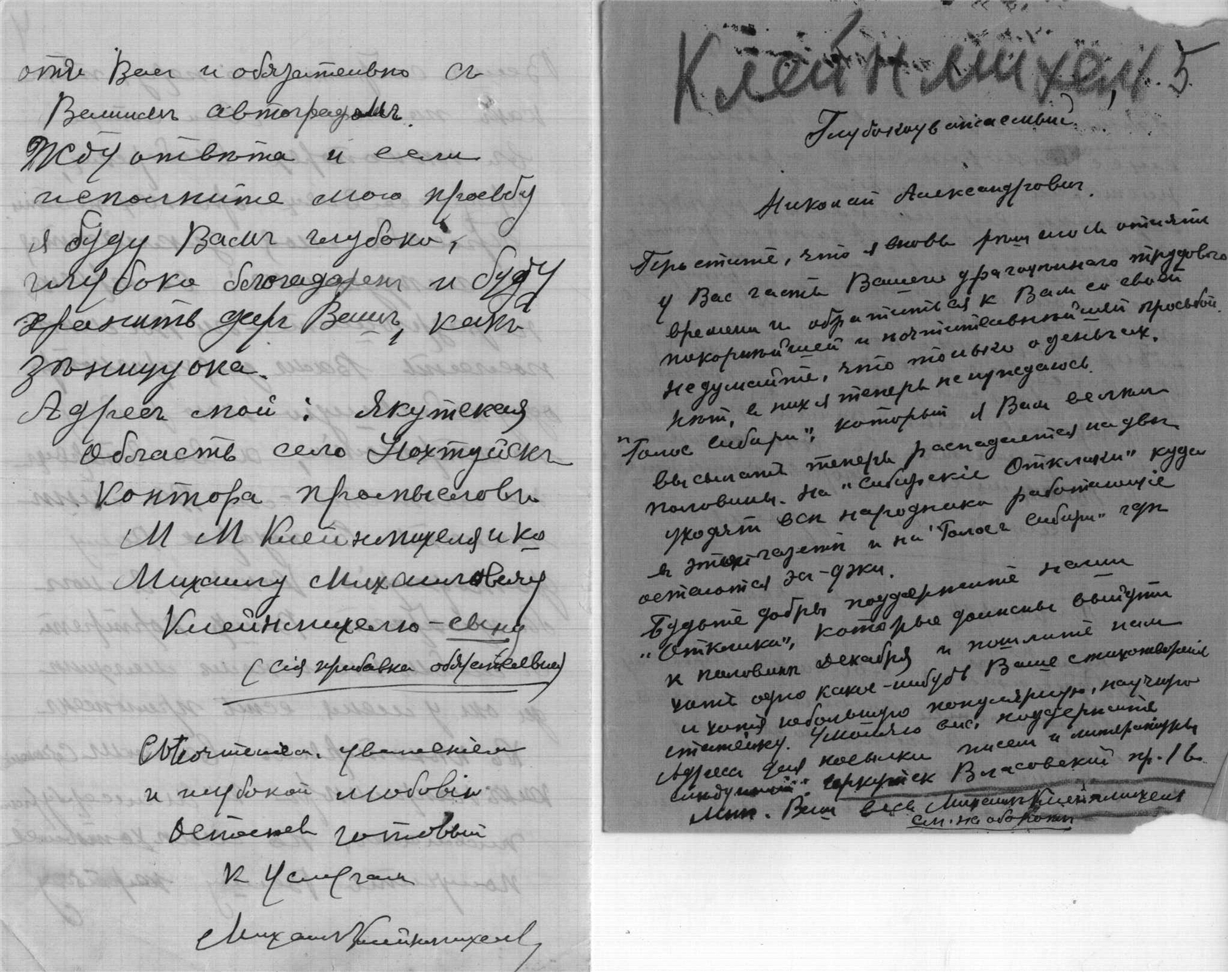 отъ Вас и обязательно съ
Вашимъ автографомъ.
Жду отвѣта и если
исполните мою просьбу
я буду Вамъ глубоко,
глубоко благодаренъ и буду
хранить даръ Вашъ, какъ
зѣницу ока.
Адресъ мой: Якутская
область село Нохтуйскъ
Контора промысловъ
М М Клейнмихеля и Ко
Михаилу Михайловичу
Клейнмихелю-сыну
(сія прибавка обязательна)
уваженіемъ
и глубокой любовію
Остаюсь готовый
к услугам
Михаилъ Клейнмихель
Клейнмихель 5
Глубокоуважаемый
Николай Александрович.
Простите, что я вновь решаюсь отнять
у Вас часть Вашего драгоцѣннаго трудового
времени и обратиться к Вам со своей
покорнѣйшей и почтительнѣйшей просьбой.
Не думайте, что только о деньгах.
Нѣт, в них я теперь не нуждаюсь.
"Голос Сибири", который я Вам велѣл
высылать теперь распадается на двѣ
половины. На "Сибирскіе Отклики" куда
уходят всѣ народники работающіе
в этой газетѣ и на "Голос Сибири" гдѣ
остаются эс-дэки.
Будьте добры поддержите наши
"Отклики", которые должны выйти
к половинѣ декабря и пошлите нам
хотя одно какое-нибудь Ваше стихотвореніе
и хотя небольшую популярную, научную
статейку. Умоляю вас, поддержите
Адреса для посылки писем и литературы
слѣдующій: Иркутск Власовский пр. 1 в.
Ваш весь Михаилъ Клейнмихель
см. на оборотѣ